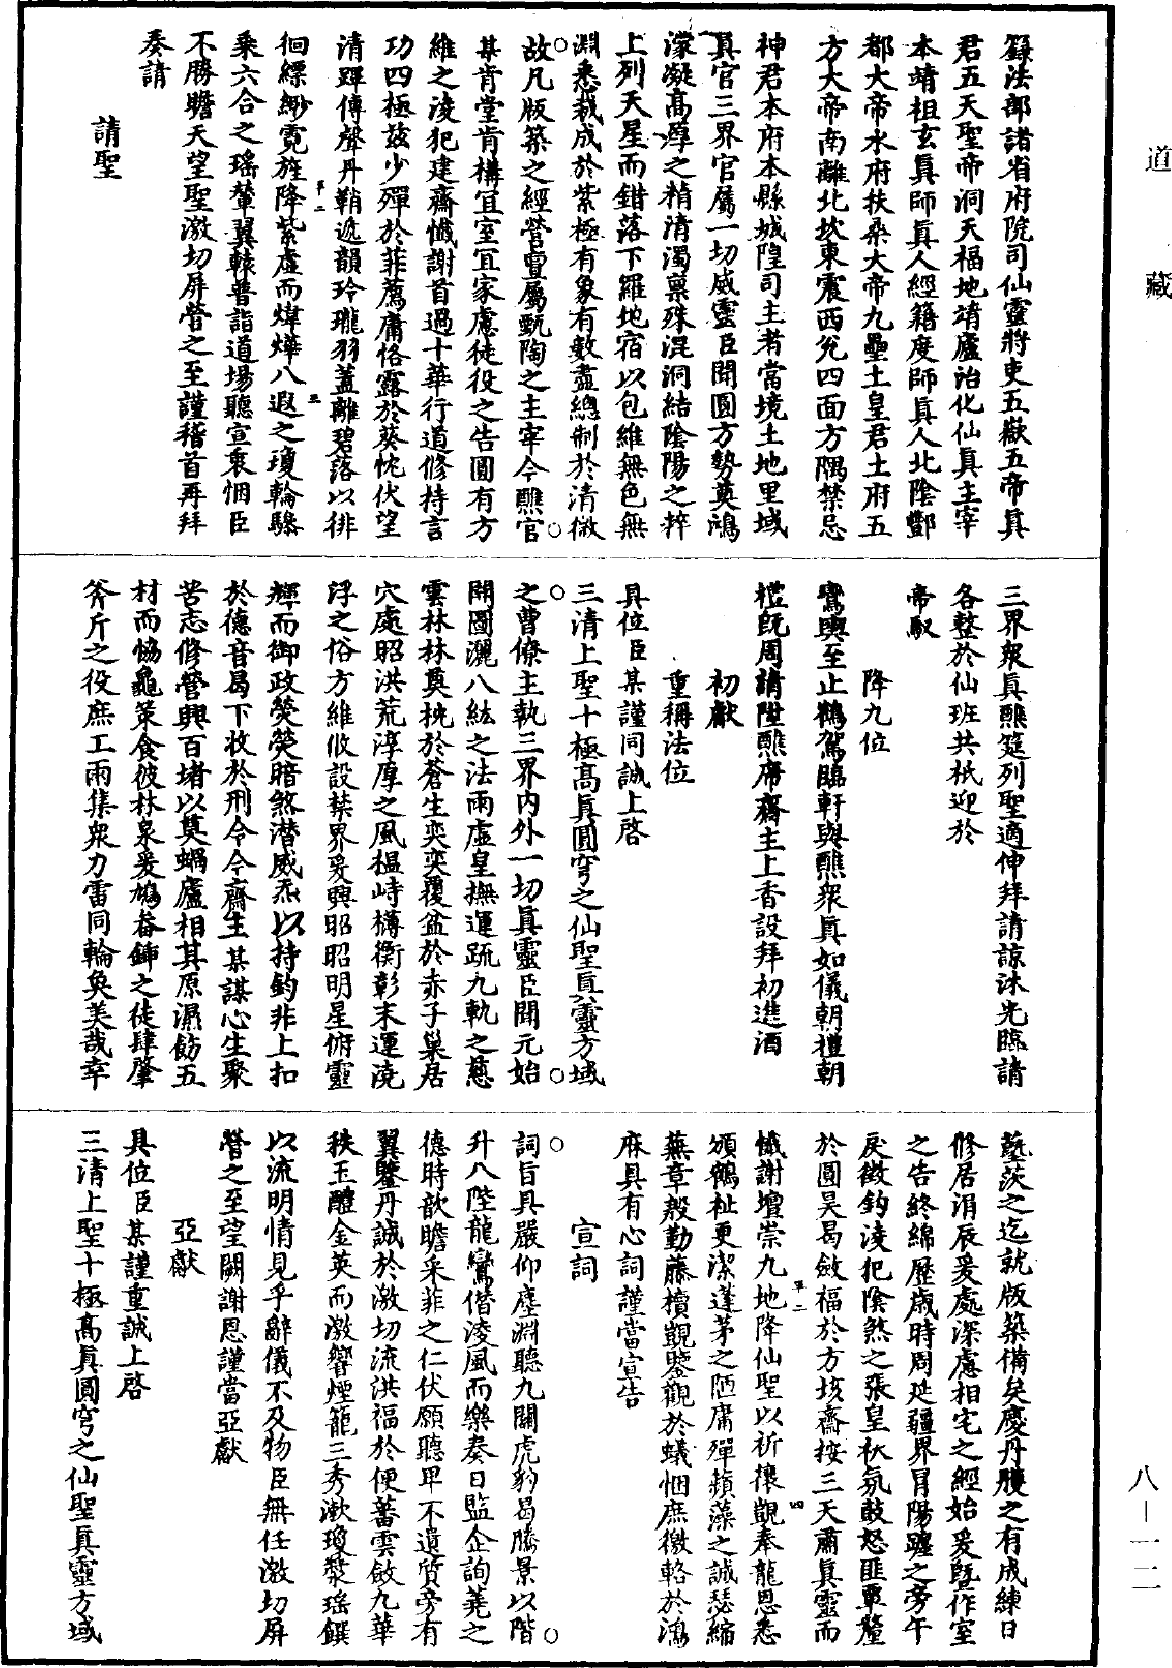 道藏
籙法部諸省府院司仙靈將吏五嶽五帝眞
君五天聖帝洞天福地靖廬治化仙眞主宰
本靖祖玄眞師眞人經籍度師眞人北陰酆
都大帝水府扶桑大帝九壘土皇君土府五
方大帝南離北坎東震西兌四面方隅禁忌
神君本府本縣城隍司主者當境土地里域
眞官三界官屬一切威靈臣聞圓方勢奠鴻
濛凝高厚之精清濁稟殊混洞結陰陽之粹
上列天星而錯落下羅地宿以包維無色無
淵悉裁成於紫極有象有數盡總制於清微
故凡版築之經營亶屬甄陶之主宰今醮官
某肯堂肯構宜室宜家慮徒役之告圓有方
維之淩犯建齋懺謝首過十華行道修持言
功四極茲少殫於菲薦庸恪露於葵忱伏望
清蹕傳聲丹鞘遞韻玲瓏羽蓋離碧落以徘
徊縹緲霓旌降紫虛而煒燁八遐之瓊輪驂
乘六合之瑤輦翼轅普詣道場聽宣衷悃臣
不勝瞻天望聖激切屏營之至謹稽首再拜
奏請
請聖
三界衆眞醮筵列聖適伸拜請諒沐光臨請
各整於仙班共祇迎於
帝馭
降九位
鸞輿至止鶴駕臨軒與醮衆眞如儀朝禮朝
禮旣周請陞醮席齋主上香設拜初進酒
初獻
重稱法位
具位臣某謹同誠上啓
三清上聖十極高眞圓穹之仙聖眞靈方域
之曹僚主執三界內外一切眞靈臣聞元始
開圖灑八紘之法雨虛皇撫運疏九軌之慈
雲林林奠枕於蒼生奕奕覆盆於赤子巢居
穴處昭洪荒淳厚之風榲峙樽衡彰末運澆
浮之俗方維攸設禁界爰興昭昭明星俯靈
輝而御政熒熒暗煞潛威炁以持鈞非上扣
於德音曷下收於刑令今齋主某謀心生聚
苦志修營興百堵以奠蝸廬相其原濕飭五
材而恊龜策食彼林泉爰鳩畚鍤之徒肆肇
斧斤之役庶工雨集衆力雷同輪奐美哉幸
墍茨之迄就版築備矣慶丹雘之有成練日
修居涓辰爰處深慮相宅之經始爰曁作室
之告終綿歷歲時周延疆界冒陽躔之旁午
戾徵鈞淩犯陰煞之張皇袄氛鼓怒匪覃釐
於圓昊曷斂福於方垓齋按三天肅眞靈而
懺謝壇崇九地降仙聖以祈禳觀奉龍恩悉
頒鶴祉更潔蓬茅之陋庸殫蘋藻之誠瑟縮
蕪章殺勤藤櫝觀鑒觀於蟻悃庶徹輅於鴻
庥具有心詞謹當宣告
宣詞
詞旨具嚴仰塵淵聽九關虎豹曷騰景以階
升八陛龍鸞僭淩風而樂奏日監企詢蕘之
德時歆瞻采菲之仁伏願聽卑不遺質旁有
翼鑒丹誠於激切流洪福於便蕃雲斂九華
秩玉醴金英而激響煙籠三秀漱瓊漿瑤饌
以流明情見乎辭儀不及物臣無任激切屏
營之至望闕謝恩謹當亞獻
亞獻
具位臣某謹重誠上啓
三清上聖十極高眞圓穹之仙聖眞靈方域
八—一二